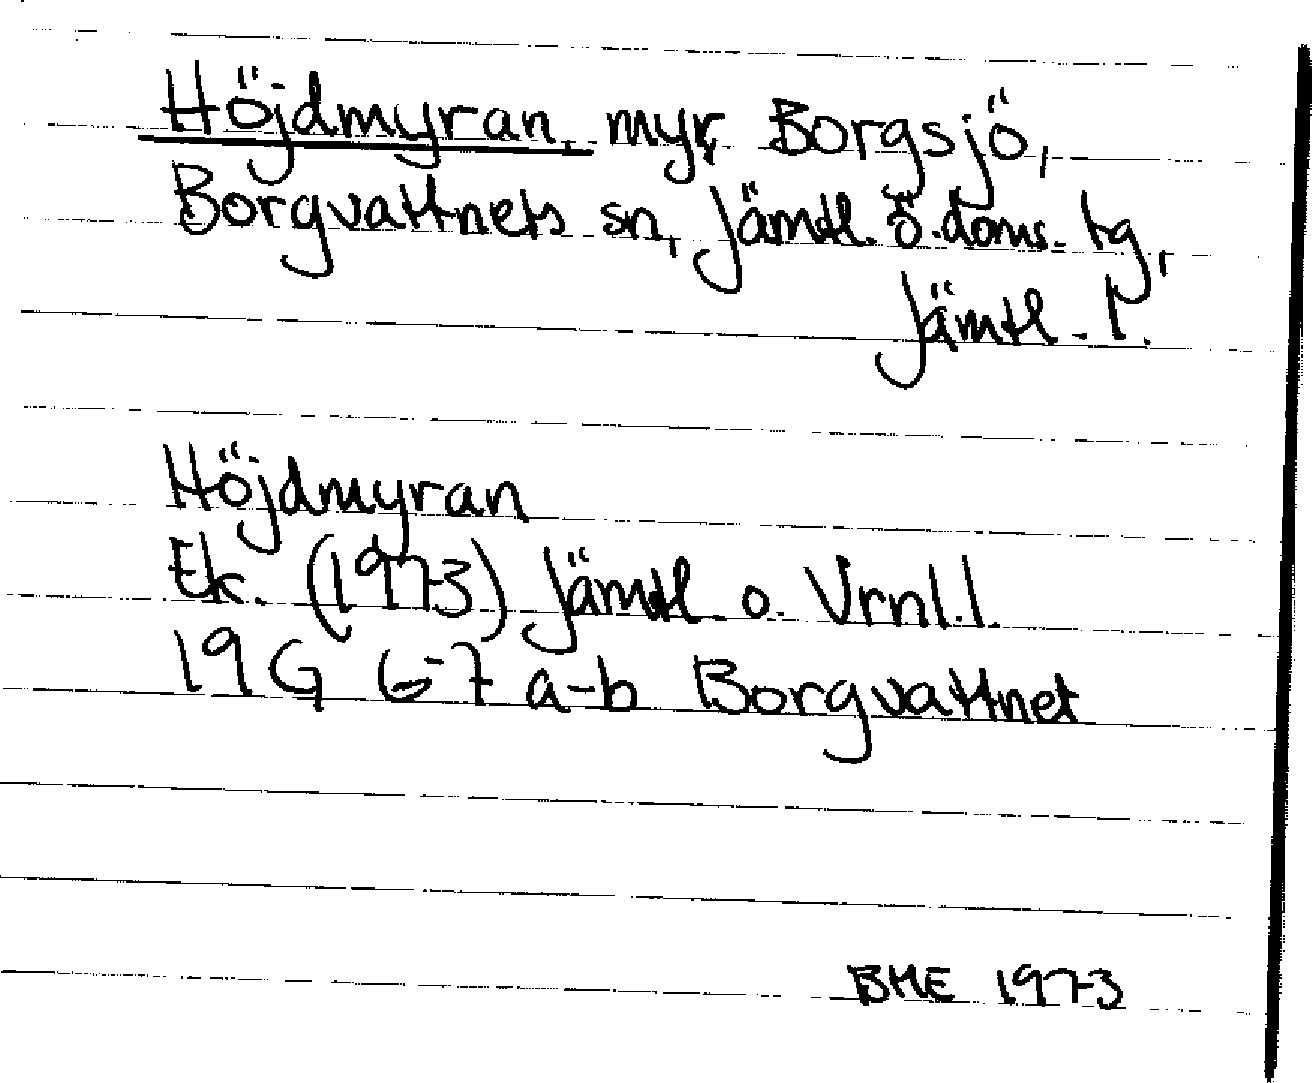 Höjdmyran, myr, Borgsjö,
Borgvattnets sn, Jämtl. ö. doms. tg,
Jämtl. l.
Höjdmyran
Ek. (1973) Jämtl. o. Vrnl. l.
19 G 6-7 a-b Borgvattnet
BME 1973